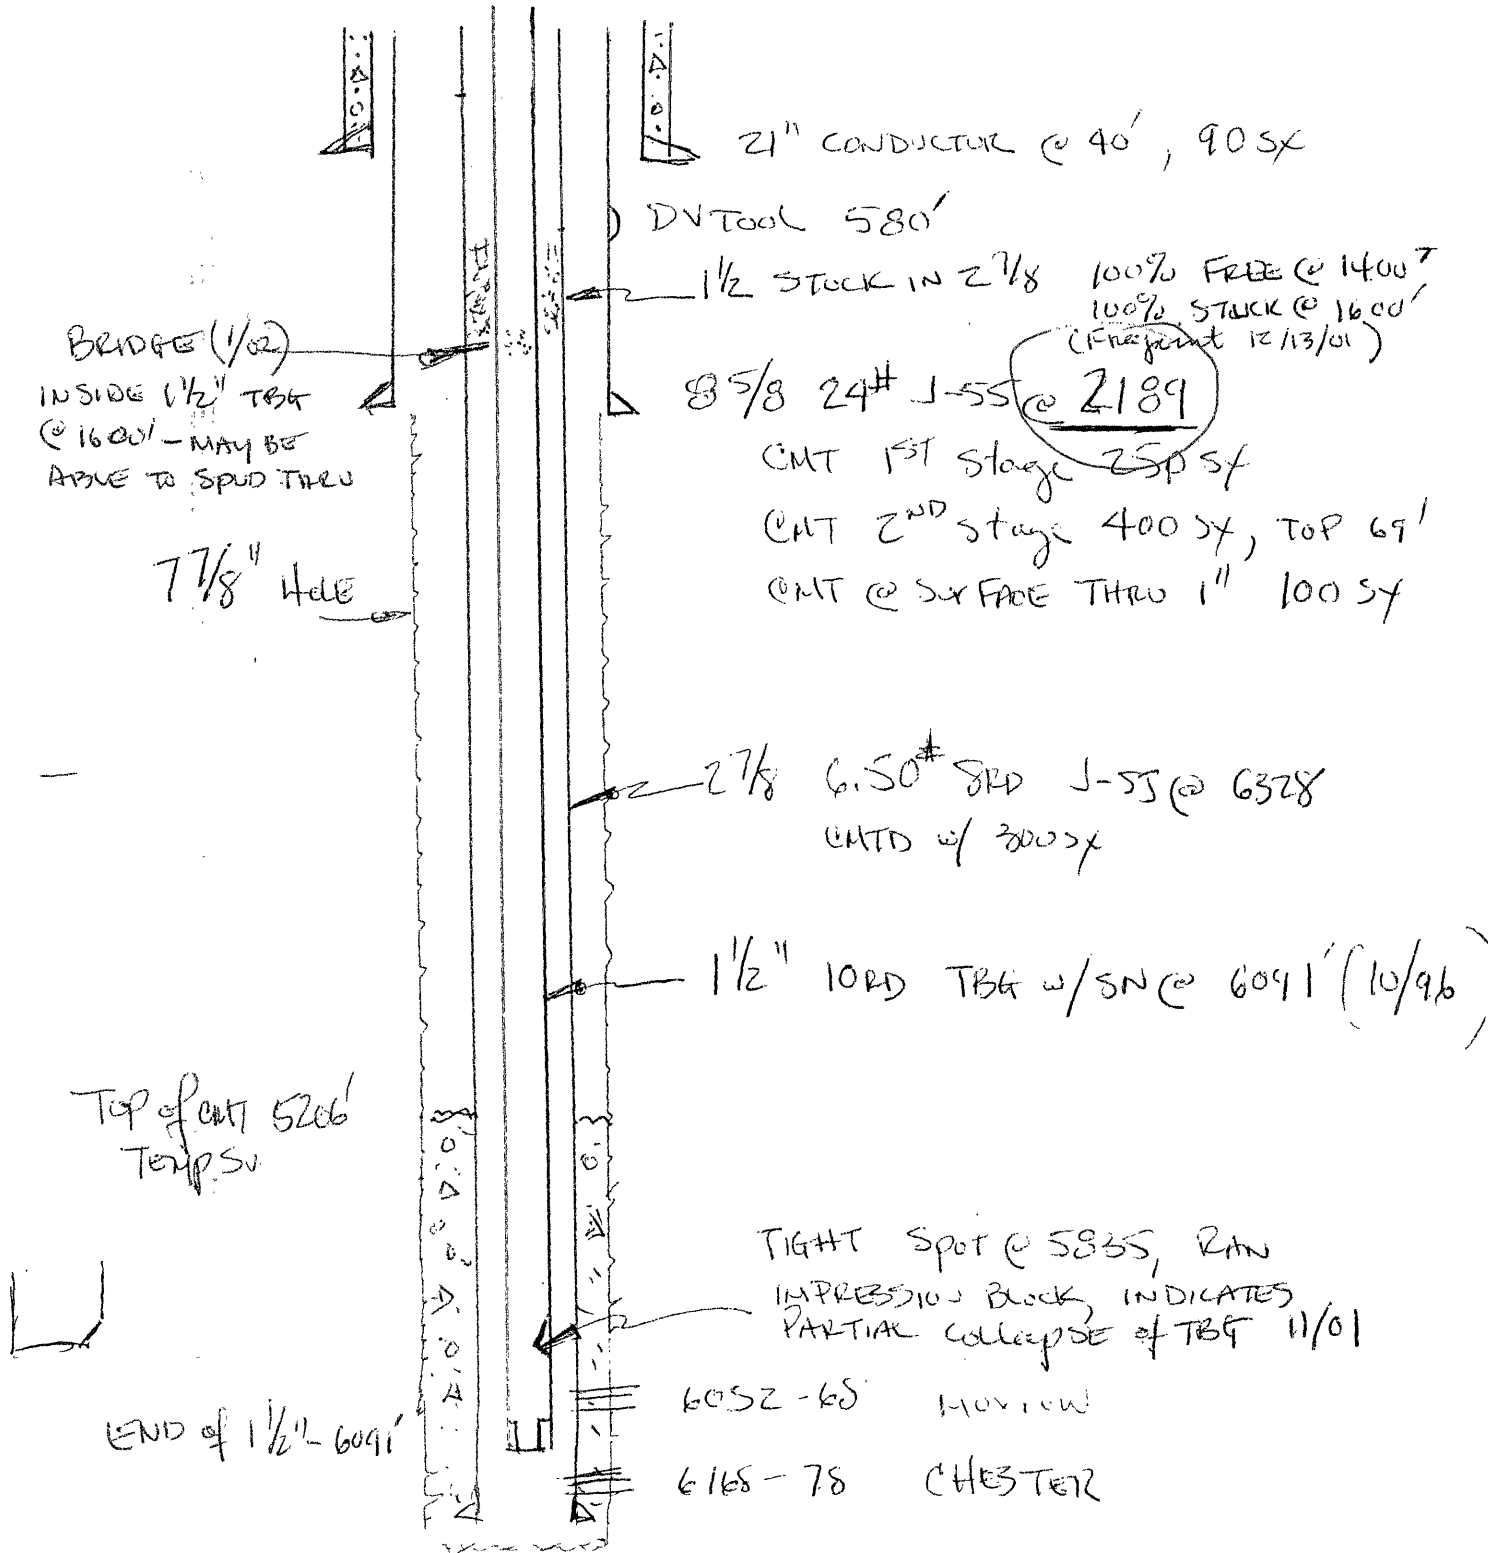 21" CONDUCTOR @ 40', 90 SX
DV TOOL 580'
1 1/2 STUCK IN 2 7/8 100% FREE @ 1400'
100% STUCK @ 1600'
(Freepoint 12/13/01)
BRIDGE (1/02)
INSIDE 1 1/2" TBG
@ 1600' - MAY BE
ABLE TO SPUD THRU
8 5/8 24# J-55 @ 2189
CMT 1ST Stage 250 SX
CMT 2ND Stage 400 SX, TOP 69'
CMT @ SURFACE THRU 1" 100 SX
7 7/8" HOLE
2 7/8 6.50# 8RD J-55 @ 6328
CMTD w/ 300 SX
1 1/2" 10RD TBG w/ SN @ 6091' (10/96)
TOP of CMT 5206'
TEMP. SV.
TIGHT SPOT @ 5835, RAN
IMPRESSION BLOCK, INDICATES
PARTIAL COLLAPSE of TBG 11/01
6052-68
END of 1 1/2" - 6091'
6168-78 CHESTER